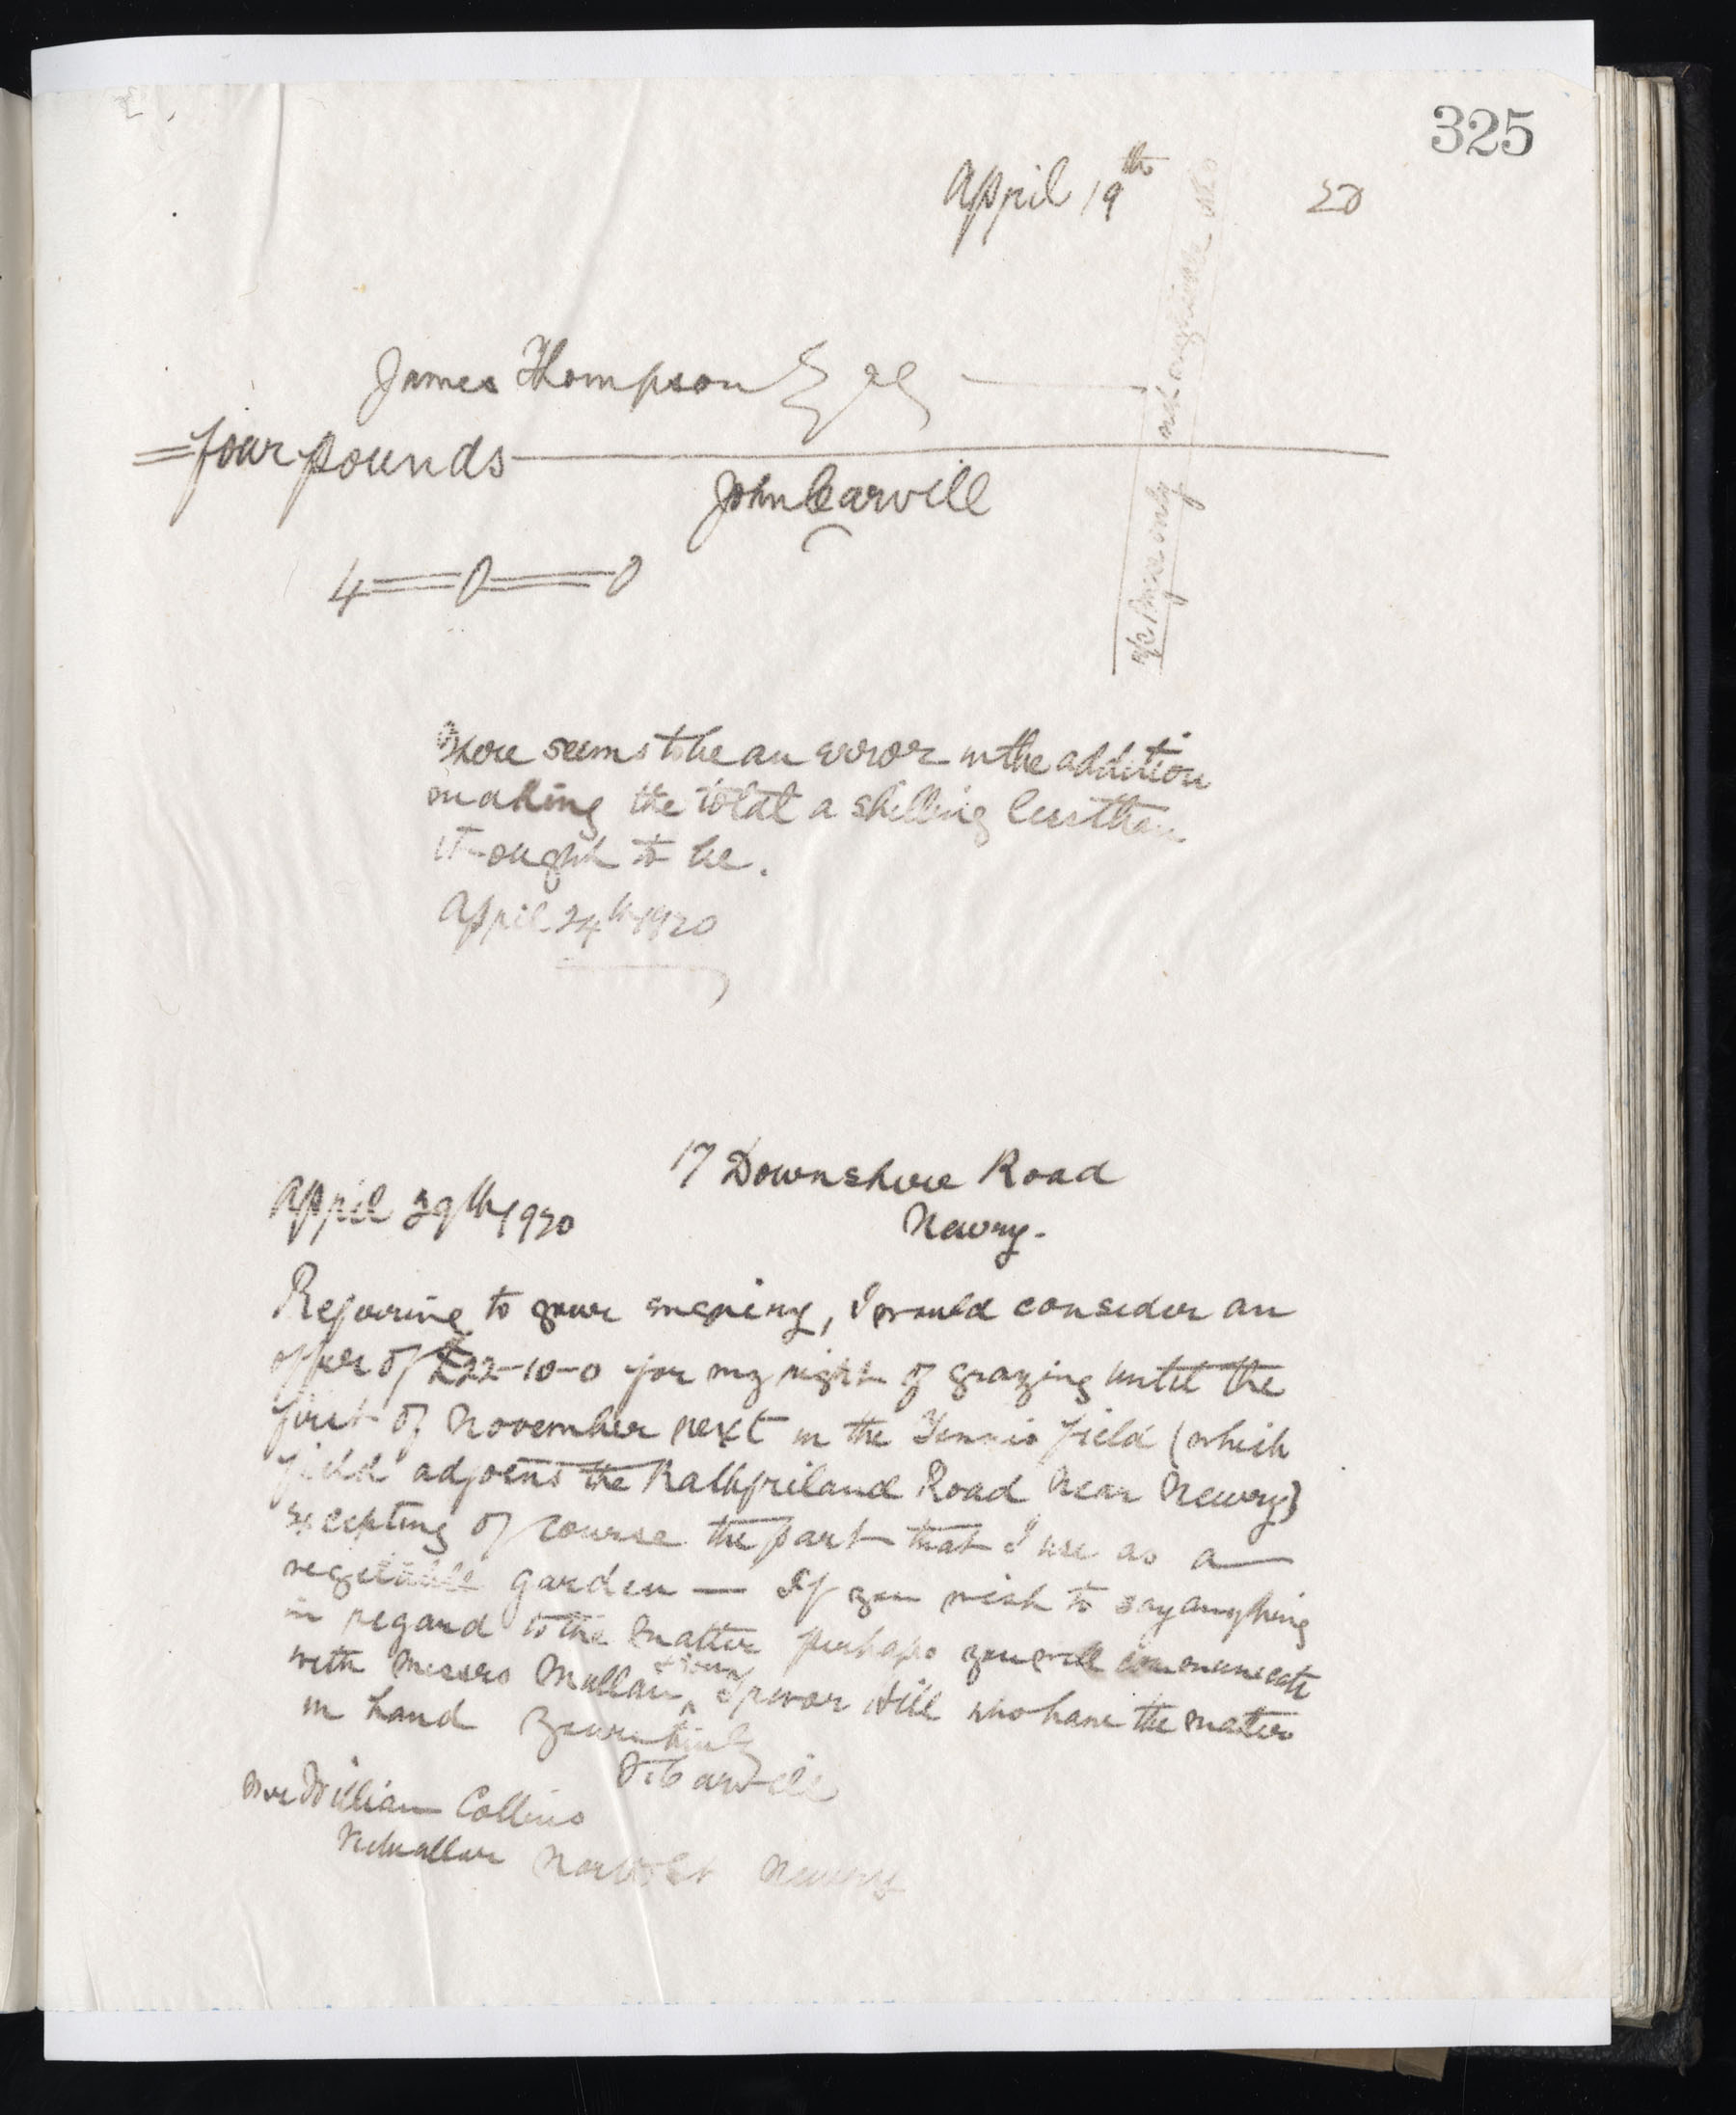 325
April 19th 20
James Thompson Esqre
=four pounds
John Carvill
4=0=0
a/c payee only not negotiable
There seems to be an error in the addition
making the total a shilling less than
it ought to be.
April 24th 1920
17 Downshire Road
April 29th 1920 Newry.
Referring to your enquiry, I would consider an
offer of £22-10-0 for my right of grazing until the
first of November next in the Tennis field (which
field adjoins the Rathfriland Road near Newry)
excepting of course the part that I use as a
vegetable garden — If you wish to say anything
in regard to the matter perhaps you will communicate
with Messrs Mullan & Son, Trevor Hill who have the matter
in hand Yours truly
J. Carvill
Mr William Collins
Victualler North St Newry